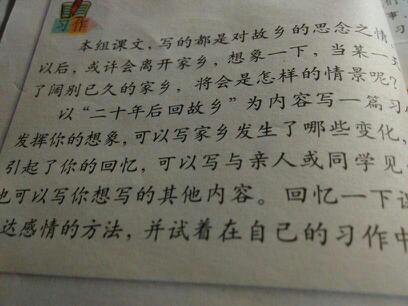 习作
本组课文,写的都是对故乡的思念之情
以后,或许会离开家乡,想象一下,当某一
了阔别已久的家乡,将会是怎样的情景呢?
以“二十年后回故乡”为内容写一篇习
发挥你的想象,可以写家乡发生了哪些变化,
引起了你的回忆,可以写与亲人或同学见
也可以写你想写的其他内容。回忆一下
达感情的方法,并试着在自己的习作中